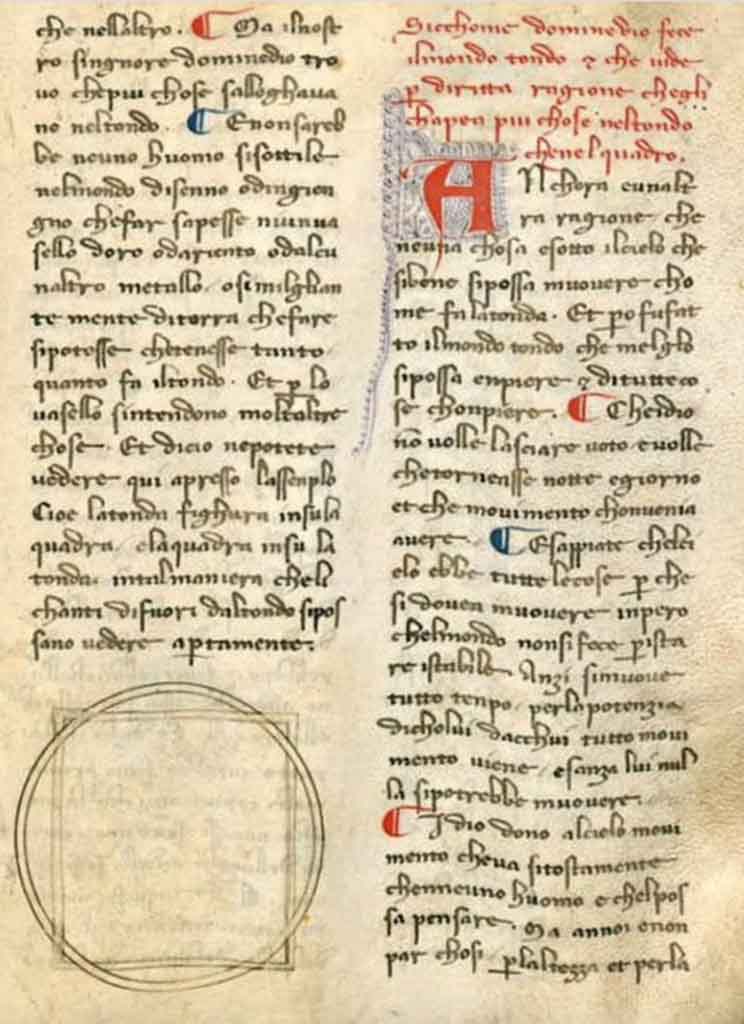 che nellaltro. ¶ Ma ilnost
ro singnore dominedio tro
uo chepiu chose salloghaua
no neltondo. ¶ Enonsareb
be neuno huomo sisottile
nelmondo disenno odingien
gno chefar sapesse niunua
sello doro odariento odalcu
naltro metallo. osimiglian
te mente diterra chefare
sipotesse chetenesse tanto
quanto fa iltondo. Et p lo
uasello sintendono moltaltre
chose. Et dicio nepotete
uedere qui apresso lassenplo
Cioe latonda fighura insula
quadra. elaquadra insu la
tonda. intalmaniera cheli
chanti difuori daltondo sipos
sano uedere aptamente.
Sicchome dominedio fece
ilmondo tondo ⁊ che uide
p diritta ragione chegli
chapea piu chose neltondo
chenelquadro.
ANchora eunalt
ra ragione che
neuna chosa esotto ilcielo che
sibene sipossa muouere cho
me fa latonda. Et po fu fat
to ilmondo tondo che meglio
sipossa enpiere ⁊ dituttecо
se chonpiere. ¶ Cheidio
nō uolle lasciare uoto euolle
chetornasse notte egiorno
et che mouimento chonuenia
auere. ¶ Esappiate chelci
elo ebbe tutte lecose p che
si douea muouere inpero
chelmondo nonsi fece pista
re istabile. Anzi simuoue
tutto tenpo. perlapotenzia
dicholui dacchui tutto moui
mento uiene. esanza lui nul
la sipotrebbe muouere.
¶ Idio dono alcielo moui
mento cheua sitostamente
chenneuno huomo e chelpos
sa pensare. Ma annoi enon
par chosi. plaltezza et perla